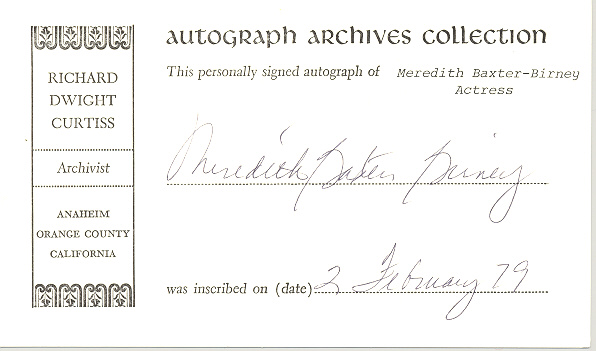 AUTOGRAPH ARCHIVES COLLECTION
RICHARD
DWIGHT
CURTISS
Archivist
ANAHEIM
ORANGE COUNTY
CALIFORNIA
This personally signed autograph of Meredith Baxter-Birney
Actress
Meredith Baxter Birney
was inscribed on (date) 2 February 79